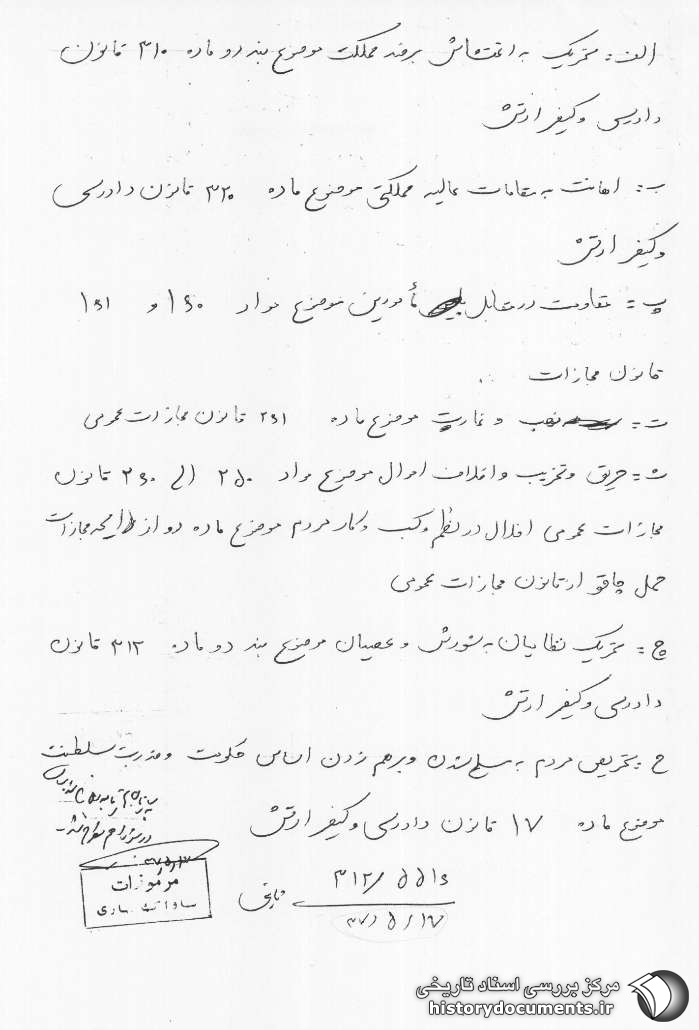 الف: تحریک به اغتشاش بر ضد مملکت موضوع بند دو ماده ۳۱۰ قانون
دادرسی و کیفر ارتش
ب: اهانت به مقامات عالیه مملکتی موضوع ماده ۳۲۰ قانون دادرسی
و کیفر ارتش
پ: مقاومت در مقابل مأمورین موضوع مواد ۱۶۰ و ۱۶۱
قانون مجازات
ت: نهب و غارت موضوع ماده ۲۶۱ قانون مجازات عمومی
ث: حریق و تخریب و اتلاف اموال موضوع مواد ۲۵۰ الی ۲۶۰ قانون
مجازات عمومی اخلال در نظم و کسب و کار مردم موضوع ماده دو از لایحه مجازات
حمل چاقو از قانون مجازات عمومی
ج: تحریک نظامیان به شورش و عصیان موضوع بند دو ماده ۳۱۲ قانون
دادرسی و کیفر ارتش
ح: تحریص مردم به مسلح شدن و برهم زدن اساس حکومت و قدرت سلطنت
موضوع ماده ۱۷ قانون دادرسی و کیفر ارتش
۳۱۲/۵۵۱۶
۳۷/۵/۱۷
مرموزات
ساواک ساری
مرکز بررسی اسناد تاریخی
historydocuments.ir